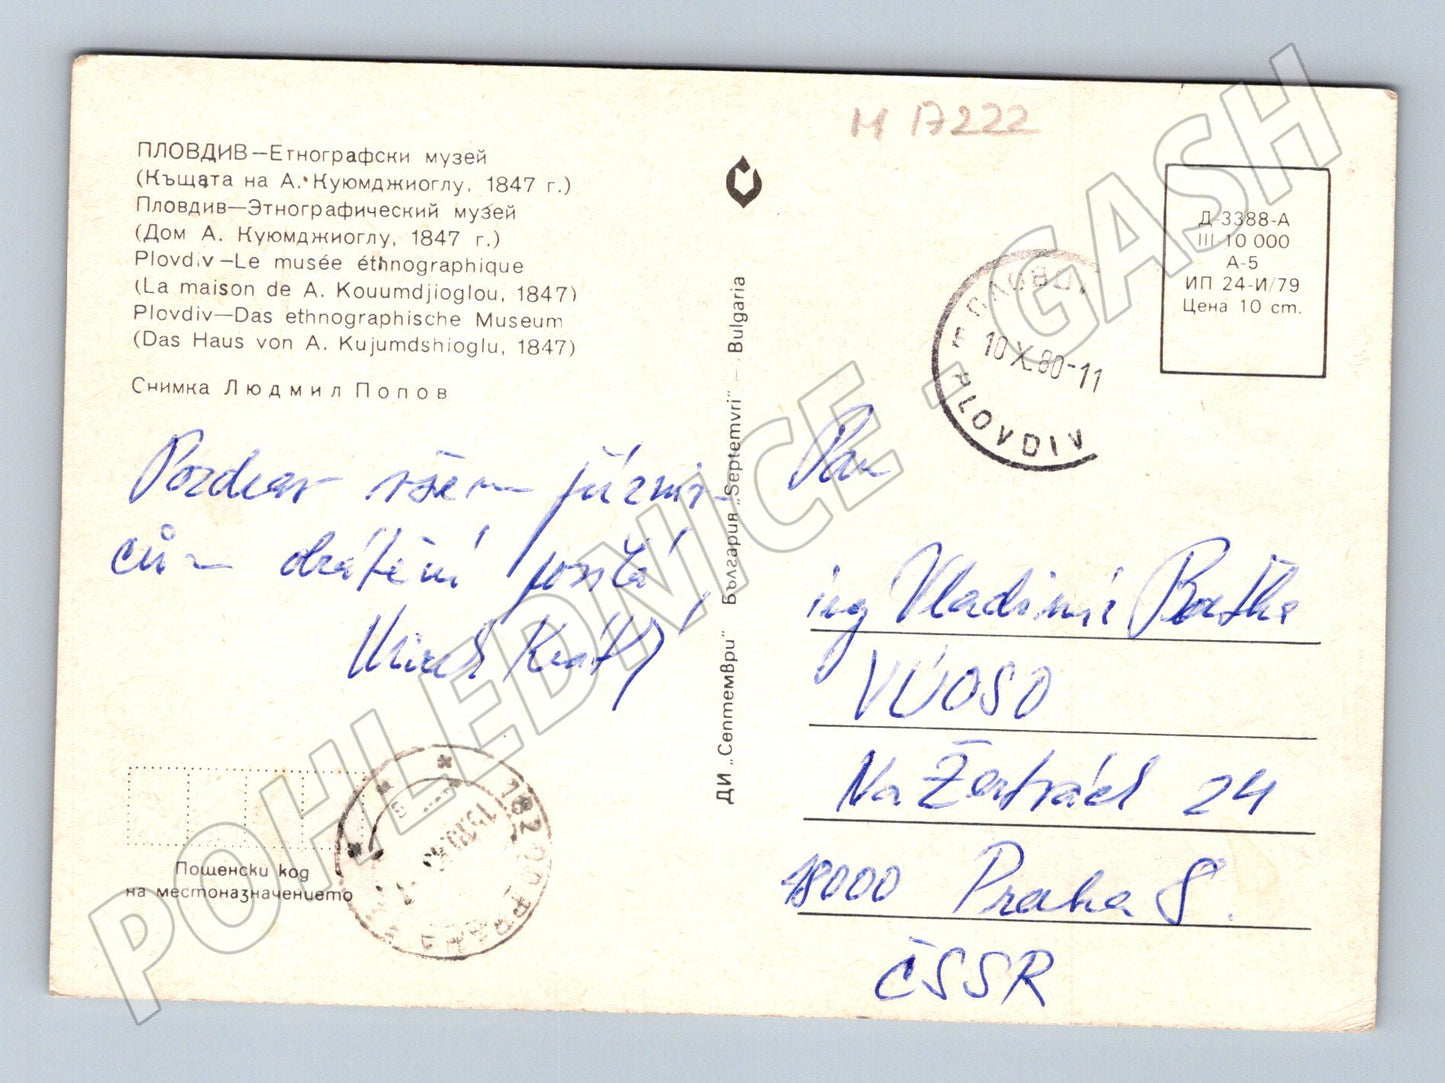 M 17222
ПЛОВДИВ—Етнографски музей
(Къщата на А. Куюмджиоглу, 1847 г.)
Пловдив—Этнографический музей
(Дом А. Куюмджиоглу, 1847 г.)
Plovdiv—Le musée éthnographique
(La maison de A. Kouumdjioglou, 1847)
Plovdiv—Das ethnographische Museum
(Das Haus von A. Kujumdshioglu, 1847)
Снимка Людмил Попов
Pozdrav všem
cům posílá
ДИ „Септември" България „Septemvri" — Bulgaria
Д-3388-А
III 10 000
А-5
ИП 24-И/79
Цена 10 ст.
10.X.80-11
PLOVDIV
Pan
ing Vladimír
VÚOSO
Na 24
18000 Praha 8.
ČSSR
Пощенски код
на местоназначението
PRAHA
POHLEDNICE - GASH